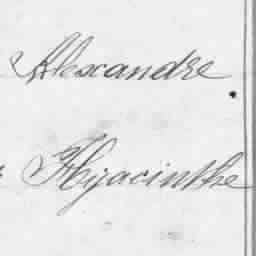 Alexandre
Hyacinthe